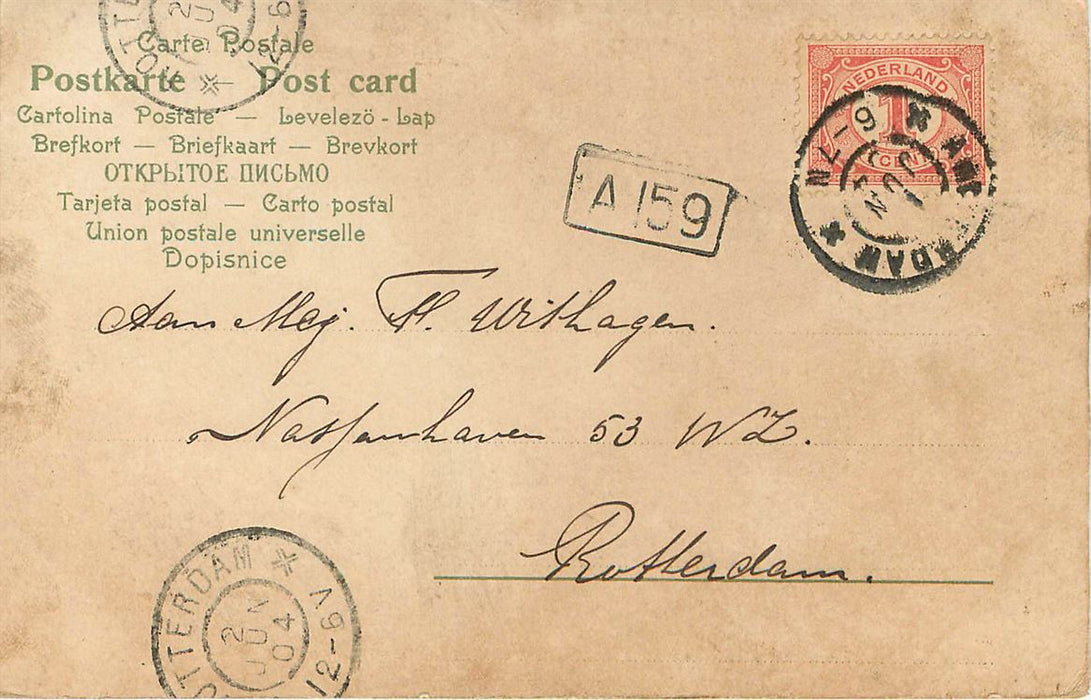 Carte Postale
Postkarte — Post card
Cartolina Postale — Levelezö-Lap
Brefkort — Briefkaart — Brevkort
ОТКРЫТОЕ ПИСЬМО
Tarjeta postal — Carto postal
Union postale universelle
Dopisnice
NEDERLAND
1
CENT
A 159
Aan Mej. H. Withagen.
Nassauhaven 53 WZ.
Rotterdam.
TTERDAM
2
JUN
04
12-6V
2
JUN
04
12-6
6-7N
JUN